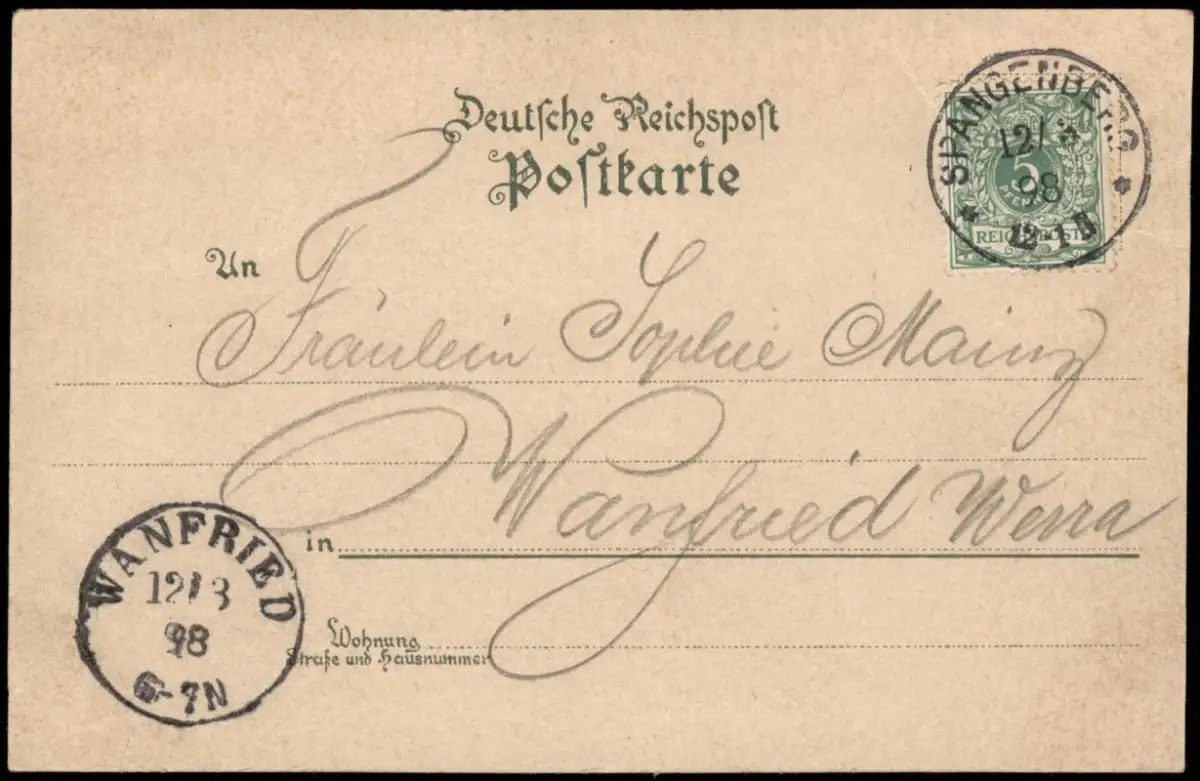 Deutsche Reichspost
Postkarte
SPANGENBERG
12/
98
12-1 N
5
REICHSPOST
An
Fräulein Sophie Mainz
in Wanfried Werra
WANFRIED
12/3
98
6-7N
Wohnung
Straße und Hausnummer